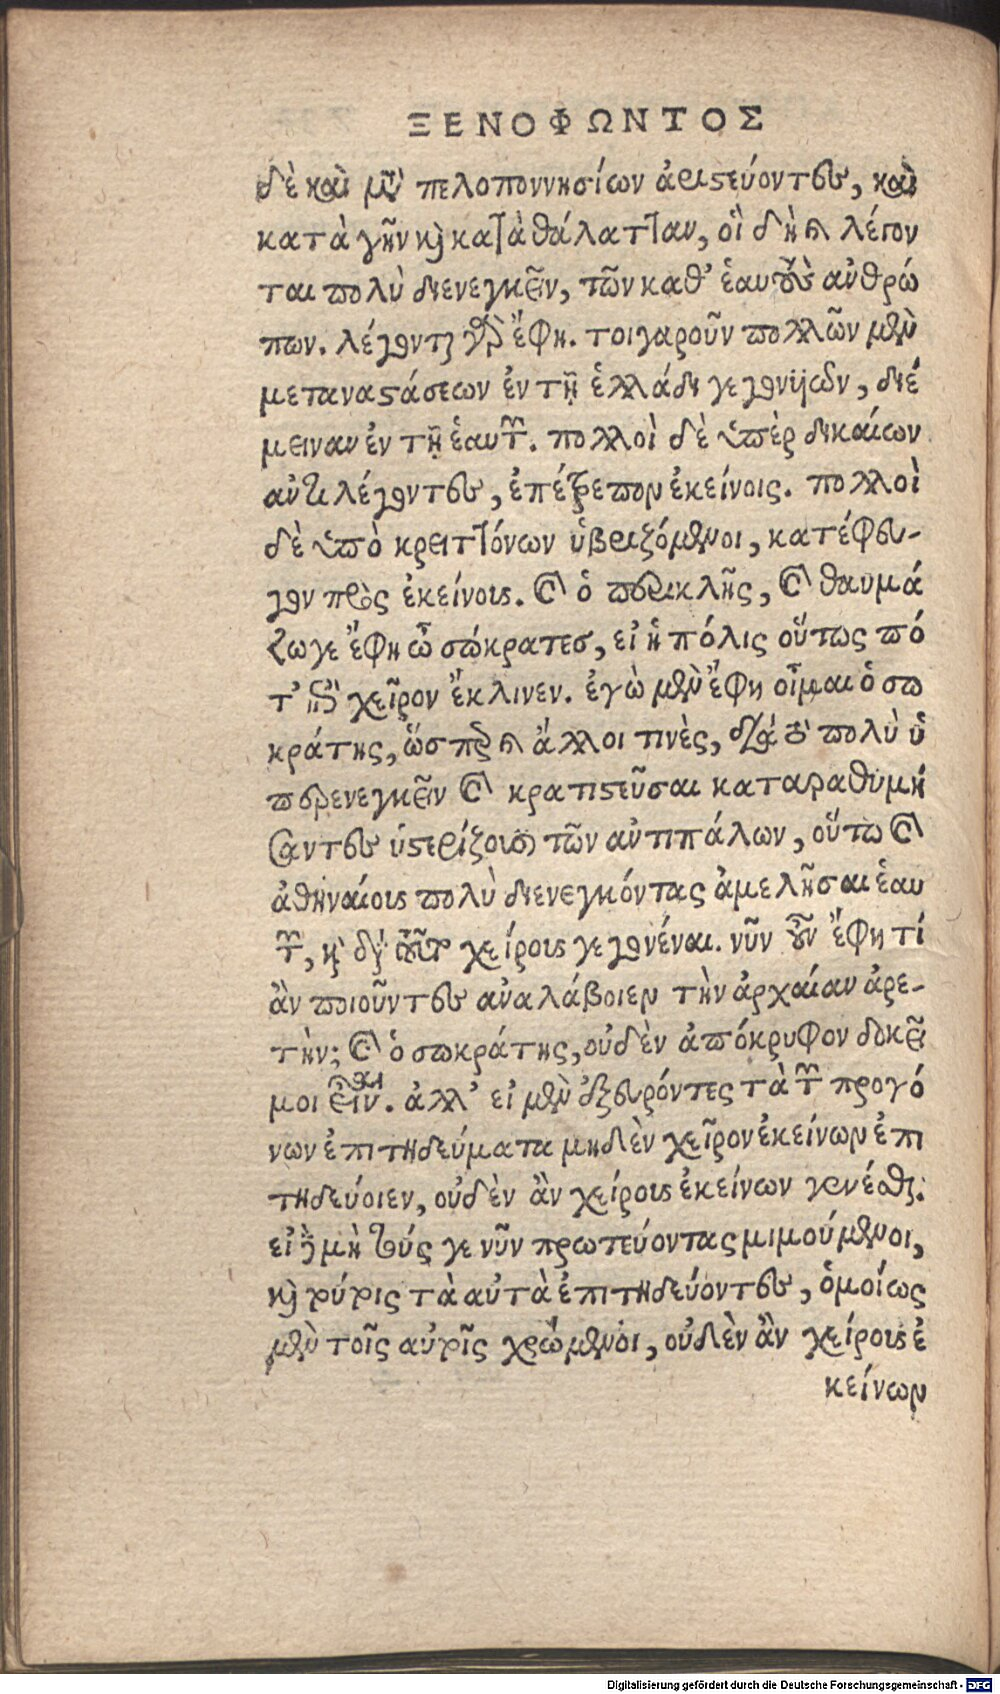 ΞΕΝΟΦΩΝΤΟΣ
δὲ καὶ μετὰ πελοποννησίων ἀριστεύοντες, καὶ
κατὰ γῆν καὶ κατὰ θάλατταν, οἳ δὴ καὶ λέγον
ται πολὺ διενεγκεῖν, τῶν καθ' ἑαυτοὺς ἀνθρώ
πων. λέγονται γὰρ ἔφη. τοιγαροῦν πολλῶν μὲν
μεταναστάσεων ἐν τῇ ἑλλάδι γεγονυιῶν, διέ
μειναν ἐν τῇ ἑαυτῶν. πολλοὶ δὲ ὑπὲρ δικαίων
ἀντιλέγοντες, ἐπέτρεπον ἐκείνοις. πολλοὶ
δὲ ὑπὸ κρειττόνων ὑβριζόμενοι, κατέφευ-
γον πρὸς ἐκείνους. καὶ ὁ περικλῆς, καὶ θαυμά
ζω γε ἔφη ὦ σώκρατες, εἰ ἡ πόλις οὕτως πό
τ' ἐπὶ χεῖρον ἔκλινεν. ἐγὼ μὲν ἔφη οἶμαι ὁ σω
κράτης, ὥσπερ καὶ ἄλλοι τινὲς, διὰ τὸ πολὺ ὑ
περενεγκεῖν καὶ κρατιστεῦσαι καταραθυμή
σαντες ὑστερίζουσι τῶν ἀντιπάλων, οὕτω καὶ
ἀθηναίους πολὺ διενεγκόντας ἀμελῆσαι ἑαυ
τῶν, καὶ διὰ τοῦτο χείρους γεγονέναι. νῦν οὖν ἔφη τί
ἂν ποιοῦντες ἀναλάβοιεν τὴν ἀρχαίαν ἀρε-
τὴν; καὶ ὁ σωκράτης, οὐδὲν ἀπόκρυφον δοκεῖ
μοι εἶναι. ἀλλ' εἰ μὲν ἐξευρόντες τὰ τῶν προγό
νων ἐπιτηδεύματα μηδὲν χεῖρον ἐκείνων ἐπι
τηδεύοιεν, οὐδὲν ἂν χείρους ἐκείνων γενέσθαι.
εἰ δὲ μὴ τούς γε νῦν πρωτεύοντας μιμούμενοι,
καὶ τούτοις τὰ αὐτὰ ἐπιτηδεύοντες, ὁμοίως
μὲν τοῖς αὐτοῖς χρώμενοι, οὐδὲν ἂν χείρους ἐ
κείνων
Digitalisierung gefördert durch die Deutsche Forschungsgemeinschaft - DFG